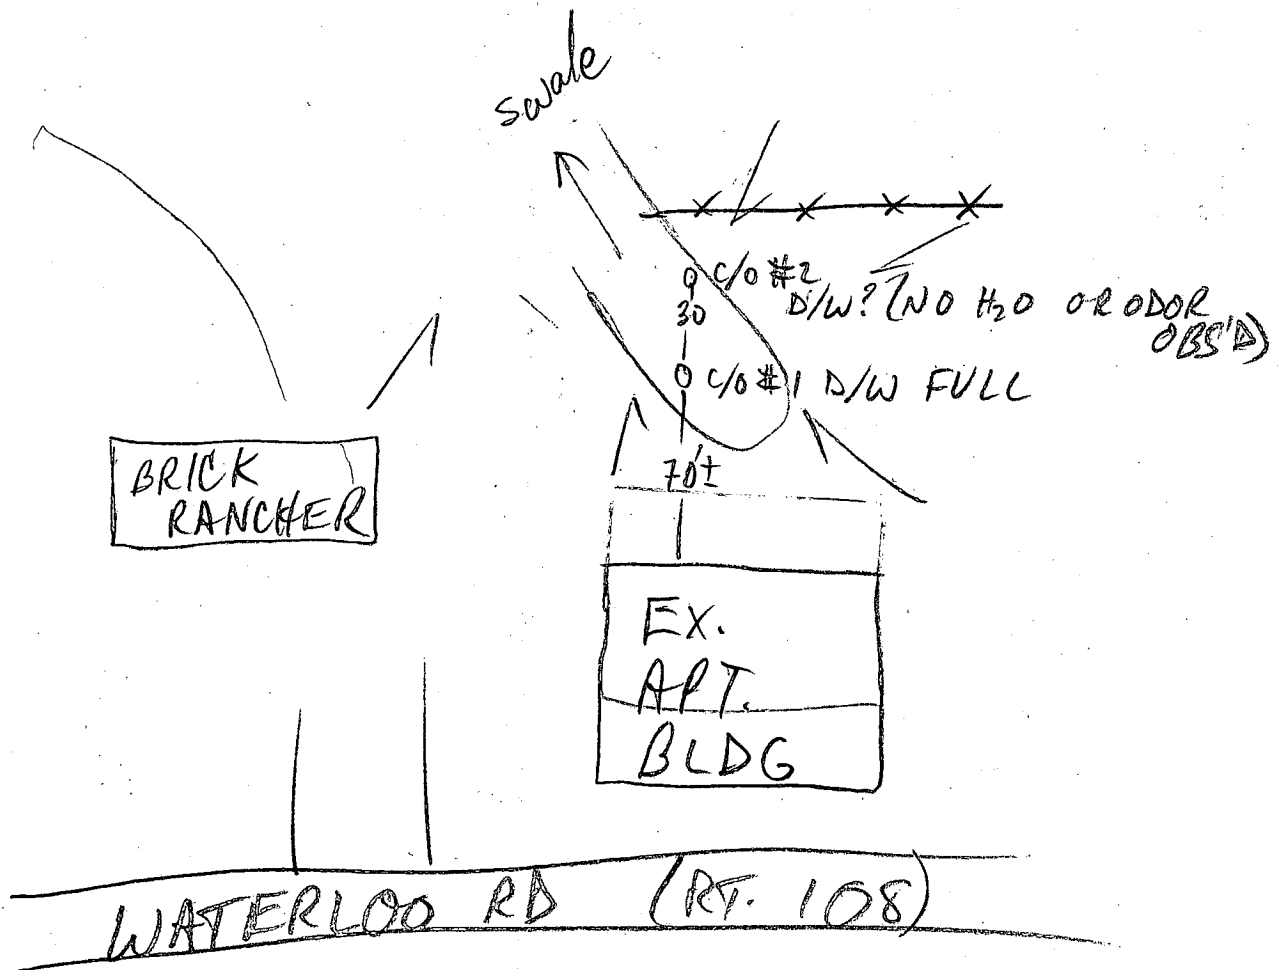 swale
C/O #2
D/W? (NO H₂O OR ODOR
OBS'D)
30
C/O #1 D/W FULL
70'±
BRICK
RANCHER
EX.
APT.
BLDG
WATERLOO RD (RT. 108)